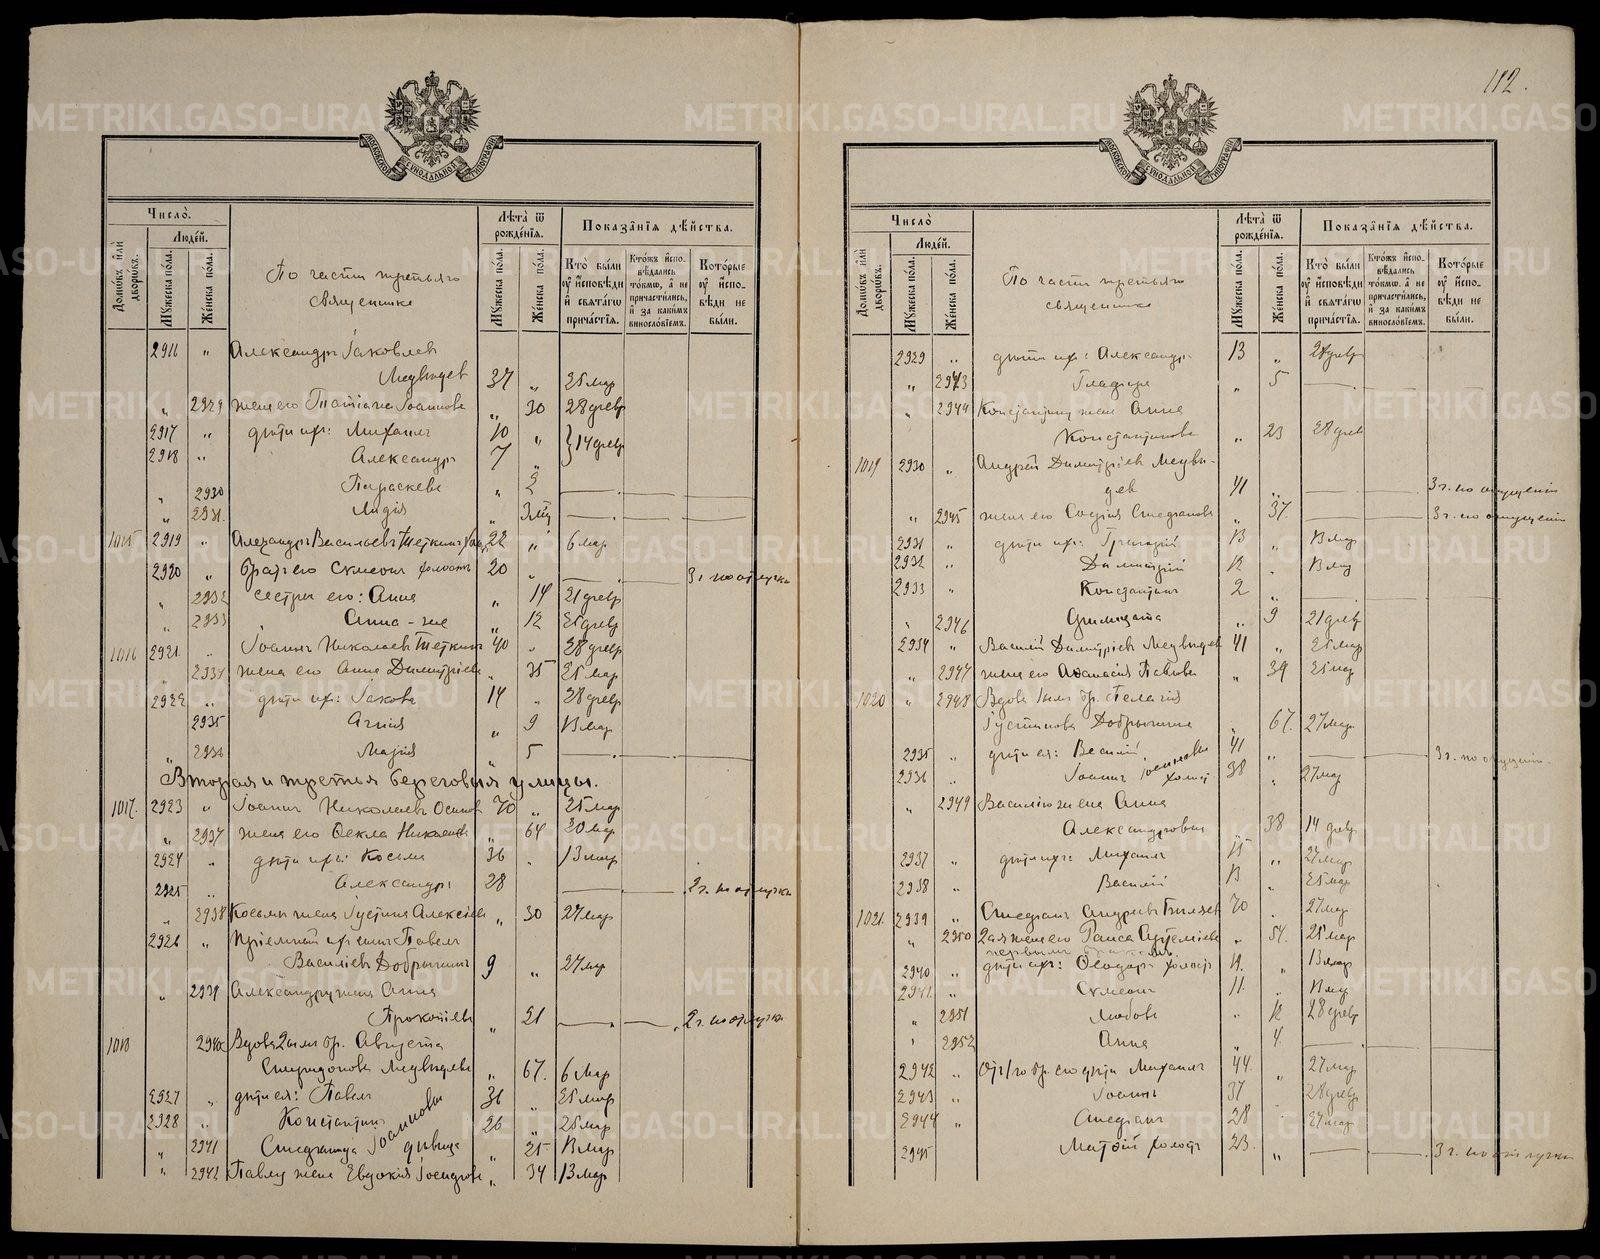 112.
МОСКОВСКОЙ СУНОДАЛЬНОЙ ТИПОГРАФІИ
Число̀.
Людей.
Домѡвъ и҆лѝ дворѡвъ.
Мꙋжеска по́ла.
Же́нска по́ла.
По части третьяго
священника
Лѣта̀ ѿ рожде́нїѧ.
Мꙋжеска по́ла.
Же́нска по́ла.
Показа̑нїѧ дѣ́йства.
Кто̀ бы́ли ᲂу҆ и҆сповѣди и҆ свѧта́гѡ прича́стїѧ.
Кто́жъ и҆спо- вѣдались то́кмѡ, а҆ не причасти́лись, и҆ за каки́мъ винослоⷡ҇їемъ.
Кото́рые ᲂу҆ и҆спо- вѣди не бы́ли.
2916 " Александръ Іаковлев
Медведев 37 " 25 мар
" 2929 жена его Татіана Іоаннова " 30 28 февр
2917 " дети их: Михаилъ 10 "
14 февр
2918 " Александръ 7 "
" 2930 Параскева " 2
" 2931 Лидія " 3 мц
1015 2919 " Александръ Васильевъ Теткинъ 22 " 6 мар
2920 " братъ его Сумеонъ холостъ 20 " 3 г. по отлучке
" 2932 сестры его: Анна " 14 21 февр
" 2933 Анна-же " 12 25 февр
1016 2921 " Іоаннъ Николаевъ Теткинъ 40 " 28 февр
" 2934 жена его Анна Димитріева " 35 25 мар
2922 " дети их: Іаковъ 14 " 28 февр
2935 Агнія " 9 13 мар
" 2936 Марія " 5
Вторая и третья береговыя улицы.
1017. 2923 " Іоаннъ Николаевъ 70 " 25 мар
" 2937 жена его Ѳекла Николаева " 64 20 мар
2924 " дети ихъ: Косьма 36 " 13 мар
2925 " Александръ 28 2 г. по отлучке
" 2938 Косьмы жена Іустина Алексіева " 30 27 мар
2926 " Пріемный их сынъ Павелъ
Василіевъ Добрынинъ 9 " 27 мар
" 2939 Александру жена Анна
Прокопіева " 21 2 г. по отлучке
1018 2940 Вдова 2-ымъ бр. Августа
Спиридонова Медведева " 67. 6 мар
2927 " дети ея: Павелъ 36 " 25 мар
2928 " Константинъ Іоанновы 26 " 25 мар
" 2941 Стефанида девица " 25 13 мар
" 2942 Павлу жена Евдокія " 34 13 мар
Число̀
Людей.
Домѡвъ и҆лѝ дворѡвъ.
Мꙋжеска по́ла.
Же́нска по́ла.
По части третьяго
священника
Лѣта̀ ѿ рожде́нїѧ.
Мꙋжеска по́ла.
Же́нска по́ла.
Показа̑нїѧ дѣ́йства.
Кто̀ бы́ли ᲂу҆ и҆сповѣди и҆ свѧта́гѡ прича́стїѧ.
Кто́жъ и҆спо- вѣдались то́кмѡ, а҆ не причасти́лись, и҆ за каки́мъ винослоⷡ҇їемъ.
Кото́рые ᲂу҆ и҆спо- вѣди не бы́ли.
2929 " дети их: Александръ 13 " 28 февр
" 2943 Глафира " 5
" 2944 Константину жена Анна
Константинова " 23 28 фев
1019 2930 " Андрей Димитріевъ Медве-
дев 41 " 3 г. по опущенію
" 2945 жена его Софія Стефанова " 37. 3 г. по опущенію
2931 " дети их: Григорій 13 " 13 мар
2932 " Димитрій 12 " 13 мар
2933 " Константинъ 2 "
" 2946 " 9 21 февр
2934 " Василій Димитріев Медведев 41 " 25 мар
" 2947 жена его Аѳанасія Павлова " 39 25 мар
1020 " 2948 Вдова 1-ымъ бр. Пелагія
Іустинова Добрынина " 67. 27 мар
2935 " дети ея: Василій 41 " 3 г. по опущенію.
2936 " Іоаннъ холост 38 " 27 мар
" 2949 Василію жена Анна
Александровна " 38 14 февр
2937 " дети их: Михаилъ 15 " 27 мар
2938 " Василій 13 " 25 мар
1021. 2939 " Стефанъ Андреевъ 70 " 27 мар
" 2950 2-ая жена его Раиса Артеміева " 54. 25 мар
2940 " дети ихъ: Ѳеодоръ холост " 13 мар
2941 " Сумеонъ 11. " 13 мар
" 2951 Любовь " 12 28 февр
" 2952 Анна " 4
2942 " бр. его дети Михаилъ 44. " 27 мар
2943 " Іоаннъ 37 28 февр
2944 " Стефанъ 28 27 мар
2945 Матѳій холост 23. " 3 г. по отлучке
METRIKI.GASO-URAL.RU